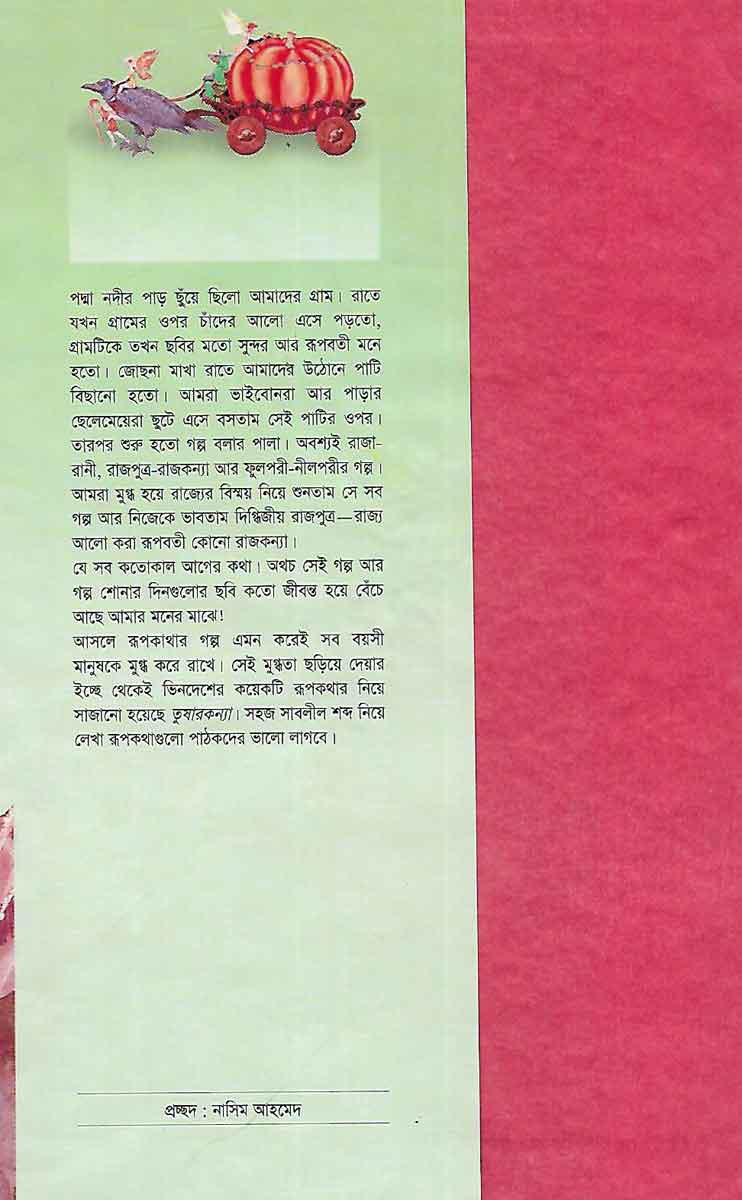 পদ্মা নদীর পাড় ছুঁয়ে ছিলো আমাদের গ্রাম। রাতে
যখন গ্রামের ওপর চাঁদের আলো এসে পড়তো,
গ্রামটিকে তখন ছবির মতো সুন্দর আর রূপবতী মনে
হতো। জোছনা মাখা রাতে আমাদের উঠোনে পাটি
বিছানো হতো। আমরা ভাইবোনরা আর পাড়ার
ছেলেমেয়েরা ছুটে এসে বসতাম সেই পাটির ওপর।
তারপর শুরু হতো গল্প বলার পালা। অবশ্যই রাজা-
রানী, রাজপুত্র-রাজকন্যা আর ফুলপরী-নীলপরীর গল্প।
আমরা মুগ্ধ হয়ে রাজ্যের বিস্ময় নিয়ে শুনতাম সে সব
গল্প আর নিজেকে ভাবতাম দিগ্বিজীয় রাজপুত্র—রাজ্য
আলো করা রূপবতী কোনো রাজকন্যা।
যে সব কতোকাল আগের কথা। অথচ সেই গল্প আর
গল্প শোনার দিনগুলোর ছবি কতো জীবন্ত হয়ে বেঁচে
আছে আমার মনের মাঝে!
আসলে রূপকাথার গল্প এমন করেই সব বয়সী
মানুষকে মুগ্ধ করে রাখে। সেই মুগ্ধতা ছড়িয়ে দেয়ার
ইচ্ছে থেকেই ভিনদেশের কয়েকটি রূপকথার নিয়ে
সাজানো হয়েছে তুষারকন্যা। সহজ সাবলীল শব্দ নিয়ে
লেখা রূপকথাগুলো পাঠকদের ভালো লাগবে।
প্রচ্ছদ : নাসিম আহমেদ